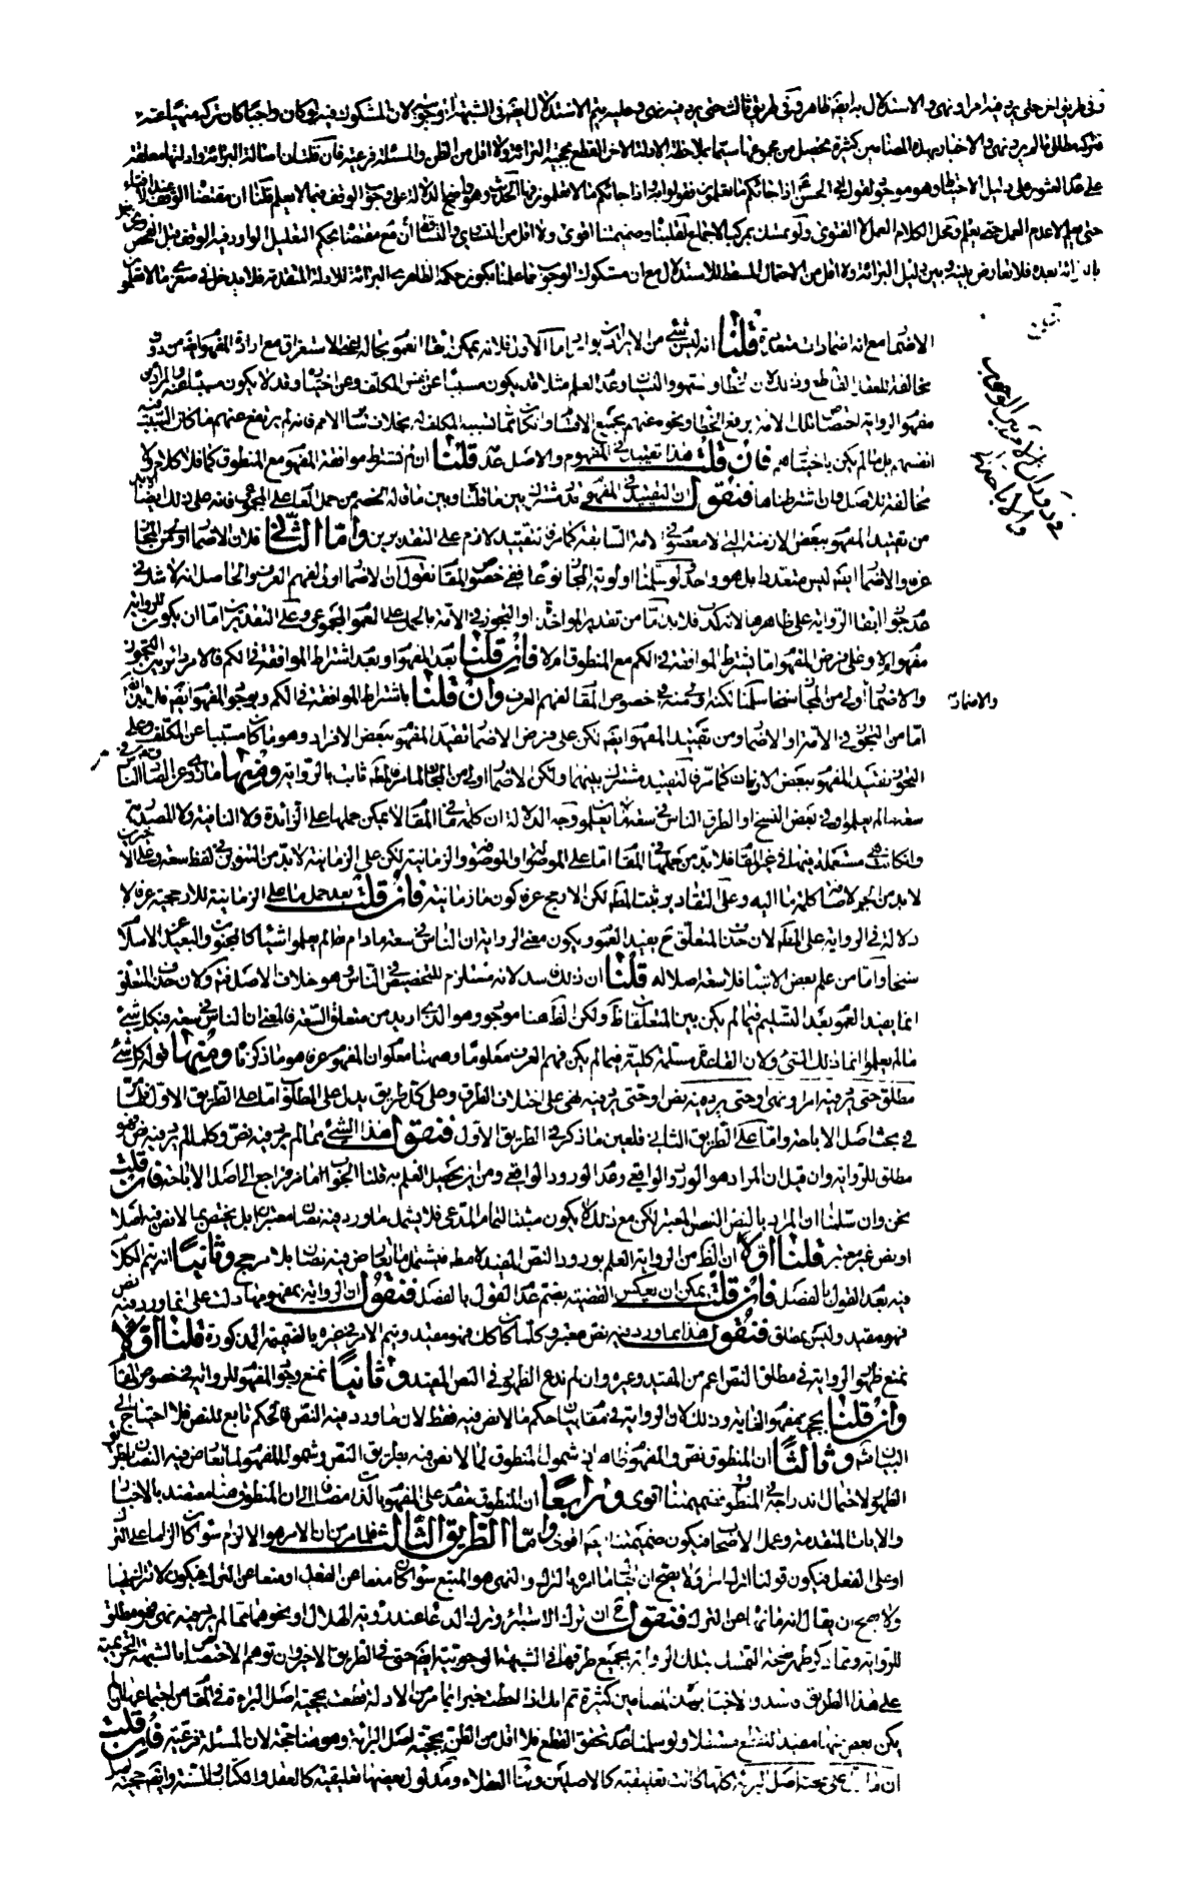 وفي طريق اخر حتى يرد فيه امر او نهي والاستدلال به ايضا ظاهر وفي طريق ثالث حتى يرد فيه نهي وعليه يتم الاستدلال ايضا في الشبهة الوجوبية لان المشكوك فيه لو كان واجبا كان تركه منهيا عنه
فتركه مطلق ما لم يرد نهي والاخبار بهذه المضامين كثيرة يحصل من مجموعها سيما بملاحظة الادلة الاخر القطع بحجية البرائة ولا اقل من الظن والمسئلة فرعية فان قلت ان اصالة البرائة وادلتها معلقة
على عدم العثور على دليل الاحتياط وهو موجود لقول ابي الحسن اذا جائكم ما تعلمون فقولوا به واذا جائكم ما لا تعلمون فها الحديث وهو واضح الدلالة على وجوب الوقف فيما لا يعلم قلنا ان مقتضاه التوقف عند الافتاء
حتى يعلم لا عدم العمل حتى يعلم ومحل الكلام العمل لا الفتوى ولو تمسك بمركب الاجماع لقلبنا وضميمتنا اقوى ولا اقل من التساوي والتساقط مع ان مقتضاه بحكم التعليل الوارد فيه الوقف قبل الفحص
بعده فلا تعارض بينه وبين دليل البرائة ولا اقل من الاحتمال المسقط للاستدلال مع ان مشكوك الوجوب مما علمنا بكون حكمه الظاهري البرائة للادلة المتقدمة فلا يدخل في صغرى ما لا تعلمون
الاضمار مع انه اضمارات متعددة قلنا انه ليس شيء من الايرادات بوارد اما الاول فلانه يمكن ابقاء العموم بحاله الاستغراق مع ارادة المفهوم من دون
مخالفة للعقل القاطع وذلك لان الخطاء والسهو والنسيان وعدم العلم مثلا قد يكون مسببا عن نفس المكلف وعن اختياره وقد لا يكون مسببا عنه والمراد من
مفهوم الرواية اختصاص تلك الامة برفع الخطاء ونحوه عنهم بجميع الاقسام وان كان بسببية المكلف له بخلاف سائر الامم فانه لم يرتفع عنهم ما كان السبب فيه
انفسهم بل ما لم يكن باختيارهم فان قلت هذا تقييد في المفهوم والاصل عدمه قلنا ان لم نشترط موافقة المفهوم مع المنطوق كما فلا كلام ولا
مخالفة للاصل وان شرطناها فنقول ان التقييد في المفهوم قدر مشترك بين ما قلنا وبين ما قاله الخصم من حمل على المجموعي فانه على ذلك ايضا لابد
من تقييد المفهوم ببعض الازمنة التي لا معصوم في الامة السابقة كما مر فالتقييد لازم على التقديرين واما الثاني فلان الاضمار اولى من المجاز
غيره والاضمار ايضا ليس متعددا بل هو واحد ولو سلمنا اولوية المجاز نوعا ففي خصوص المقام نقول ان الاضمار اولى لفهم العرف والحاصل انه لا شك في
عدم جواز ابقاء الرواية على ظاهرها لانه كذب فلابد اما من تقدير المؤاخذة او التجوز في الامة بالحمل على العموم المجموعي وعلى التقديرين اما ان يكون للرواية
مفهوم ام لا وعلى فرض المفهوم اما يشترط الموافقة في الكم مع المنطوق ام لا فان قلنا بعدم المفهوم او بعدم اشتراط الموافقة في الكم فالامر دائر بين التجوز
والاضمار اولى من المجاز سلمنا لكنه في خصوص المقام لفهم العرف وان قلنا باشتراط الموافقة في الكم وبوجود المفهوم ايضا فلابد
اما من التجوز في الامة او الاضمار ومن تقييد المفهوم ايضا لكن على فرض الاضمار تقييد المفهوم ببعض الافراد وهو ما كان مسببا عن المكلف وعلى
التجوز تقييد المفهوم ببعض الازمان كما مر فالتقييد مشترك بينهما ولكن الاضمار اولى من المجاز لما مر ثابت بالرواية ومنها ما روي عن الصادق الناس في
سعة ما لم يعلموا وفي بعض النسخ او الطرق الناس في سعة ما لم يعلموا وجه الدلالة ان كلمة ما في المقام لا يمكن حملها على الزائدة ولا النافية ولا المصدرية
وان كانت مستعملة فيها في غير المقام فلابد من حملها في المقام اما على الموصولة او الموصوفة والزمانية لكن على الزمانية لابد من التنوين في لفظ سعة وعلى الاخيرين
لابد من الجر لاضافته كلمة ما اليه وعلى التقادير يثبت المط لكن الارجح عرفا كون ما زمانية فان قلت بعد حمل ما على الزمانية للارجحية عرفا لا
دلالة في الرواية على المط لان حذف المتعلق ح يفيد العموم ويكون معنى الرواية ان الناس في سعة مادام ما لم يعلموا شيئا كالمجنون والبعيد عن الاسلام
سنخا واما من علم بعض الاشياء فلا سعة اصلا له قلنا ان ذلك فاسد لانه مستلزم للتخصيص في الناس وهو خلاف الاصل فتدبر وكان حذف المتعلق
انما يفيد العموم بعد التسليم فيما لم يكن بين المتعلقات ظاهر ولكن الظاهر هنا موجود وهو الذي اريد من متعلق السعة فالمعنى ان الناس في سعة من كل شيء
ما لم يعلموا انما ذلك الشيء ولان القاعدة مسلمة كلية فيما لم يكن فهم العرف معلوما وههنا معلوم ان المفهوم عرفا هو ما ذكرنا ومنها قوله كل شيء
مطلق حتى يرد فيه امر او نهي او حتى يرد فيه نص او حتى يرد فيه نهي على اختلاف الطرق وعلى كل طريق يدل على المطلوب اما على الطريق الاول فلما مر
في بحث اصل الاباحة واما على الطريق الثاني فلعين ما ذكر في الطريق الاول فنقول هذا الشيء مما لم يرد فيه نص وكلما لم يرد فيه نص فهو
مطلق للرواية وان قيل ان المراد هو الورود الواقعي وعدم الورود الواقعي ومن اين يحصل العلم به قلنا الجواب ما مر فراجع الى اصل الاباحة فان قلت
نحن وان سلمنا ان المراد بالنص النص المعتبر لكن مع ذلك لا يكون مثبتا لتمام المدعى فلا يشمل ما ورد فيه نصان معتبران بل يختص بما لا نص فيه اصلا
او نص غير معتبر قلنا اولا ان الظاهر من الرواية العلم بورود النص المفيد لا مطلقا فيشتمل ما تعارض فيه نصان بلا مرجح وثانيا انه يتم الكلام
فيه بعدم القول بالفصل فان قلت يمكن ان يعكس القضية بضم عدم القول بالفصل فنقول ان الرواية بمفهومها دلت على ان ما ورد فيه نص
فهو مقيد وليس بمطلق فنقول هذا مما ورد فيه نص معتبر وكلما كان كك فهو مقيد ويتم الامر في غيره بالضميمة المذكورة قلنا اولا
نمنع ظهور الرواية في مطلق النص اعم من المفيد وغيره وان لم ندع الظهور في النص المفيد وثانيا نمنع وجود المفهوم للرواية في خصوص المقام
وان قلنا بحجية مفهوم الغاية وذلك لان الرواية في مقام بيان حكم ما لا نص فيه فقط لان ما ورد فيه النص فالحكم تابع للنص فلا احتياج الى
البيان ثمه وثالثا ان المنطوق نص والمفهوم ظاهر اي شمول المنطوق لما لا نص فيه بطريق النص وشمول المفهوم لما تعارض فيه النصان بطريق
الظهور لاحتمال اندراجه في المنطوق فضميمتنا اقوى ورابعا ان المنطوق مقدم على المفهوم بالذات مضافا الى ان المنطوق هنا معتضد بالاخبار
والايات المتقدمة وعمل الاصحاب فيكون ضميمتنا ايضا اقوى واما الطريق الثالث فلما مر من ان الامر هو الالزام سواء كان الزاما على الترك
او على الفعل فيكون قولنا اترك امرا ولا يصح ان يقال ما امره بالترك والنهي هو المنع سواء كان منعا عن الفعل او منعا عن الترك فيكون لا تترك نهيا
ولا يصح ان يقال انه ما نهاه عن الترك فنقول ح ان ترك الاستبراء وترك الدعاء عند رؤية الهلال او نحوهما مما لم يرد فيه نهي فهو مطلق
للرواية وبما ذكر ظهر صحة التمسك بتلك الرواية بجميع طرقها في الشبهة الوجوبية ايضا حتى في الطريق الاخير وان توهم الاختصاص بالشبهة التحريمية
على هذا الطريق والاخبار بهذه المضامين كثيرة ثم انك اذا لاحظت خبرا بما مر من الادلة قطعت بحجية اصل البراءة في المقام من اجتماعها وان لم
يكن بعض منها مفيدا للقطع مستقلا ولو سلمنا عدم تحقق القطع فلا اقل من الظن بحجية اصل البرائة وهو هنا حجة لان المسئلة فرعية فان قلت
ان على حجية اصل البرائة كلها كانت تعليقية كالاصلين وبناء العقلاء ومدلول بعضها تعليقية كالعقل والكتاب والسنة وايضا حجية
في دوران الامر بين الوجوب
والاباحة
والاضمار